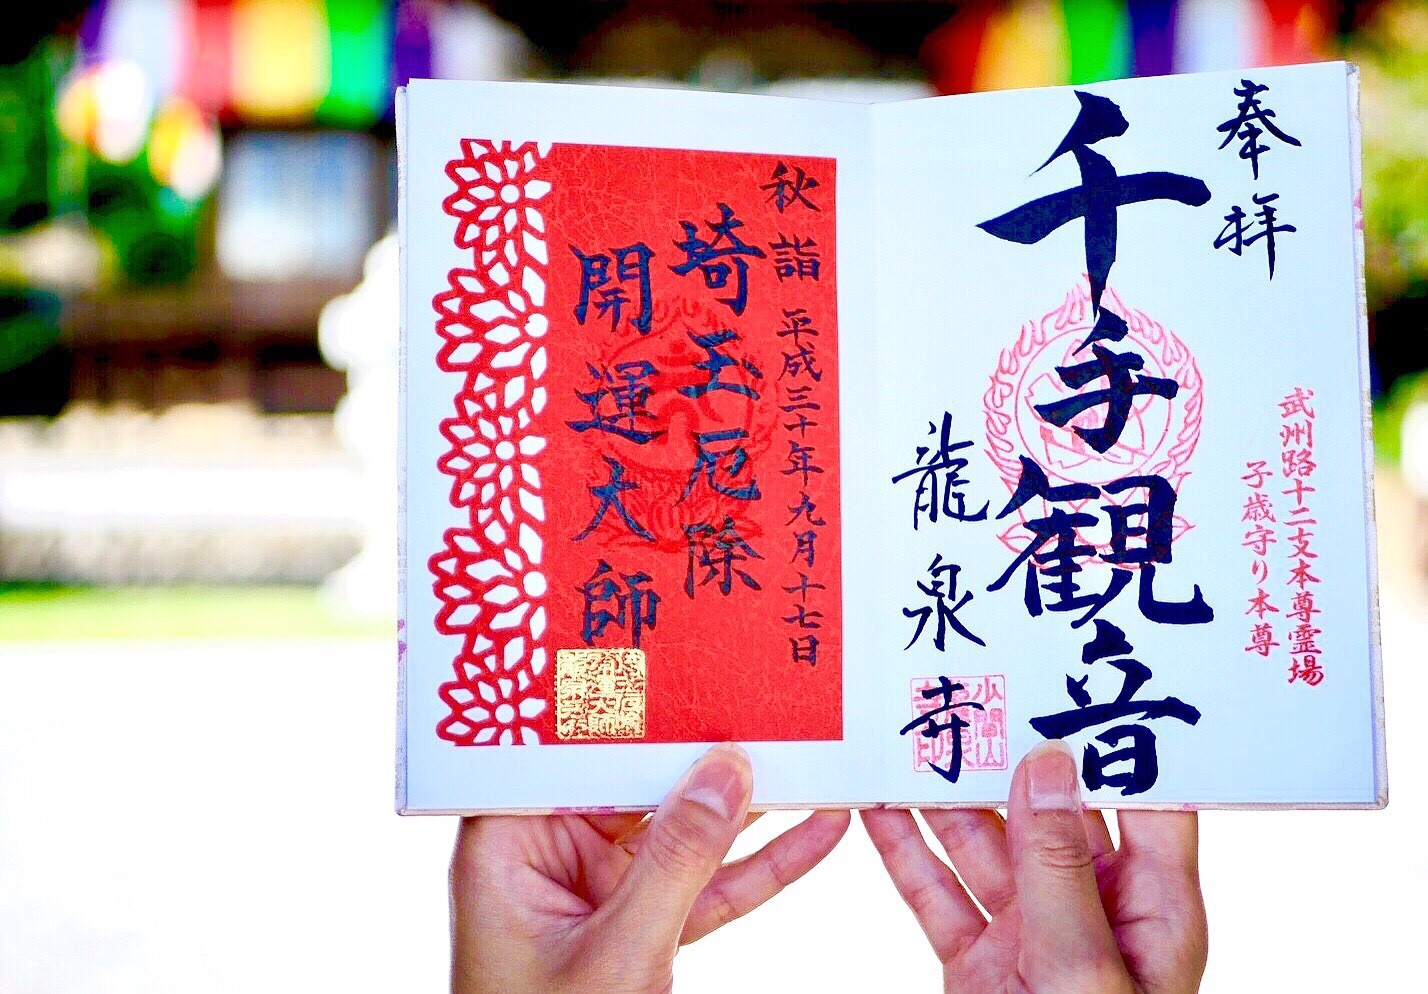 奉拝
千手観音
龍泉寺
武州路十二支本尊霊場
子歳守り本尊
秋詣 平成三十年九月十七日
埼玉厄除
開運大師